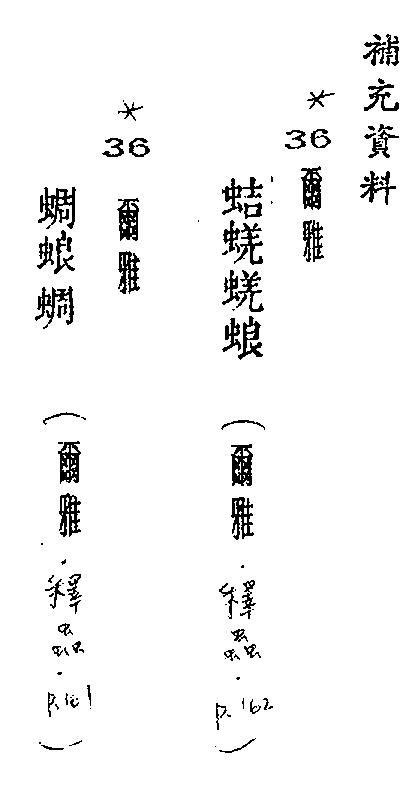 補充資料
* 36 爾雅
蛣蜣蜣蜋（爾雅．釋蟲．P.162）
* 36 爾雅
蜩蜋蜩（爾雅．釋蟲．P.161）